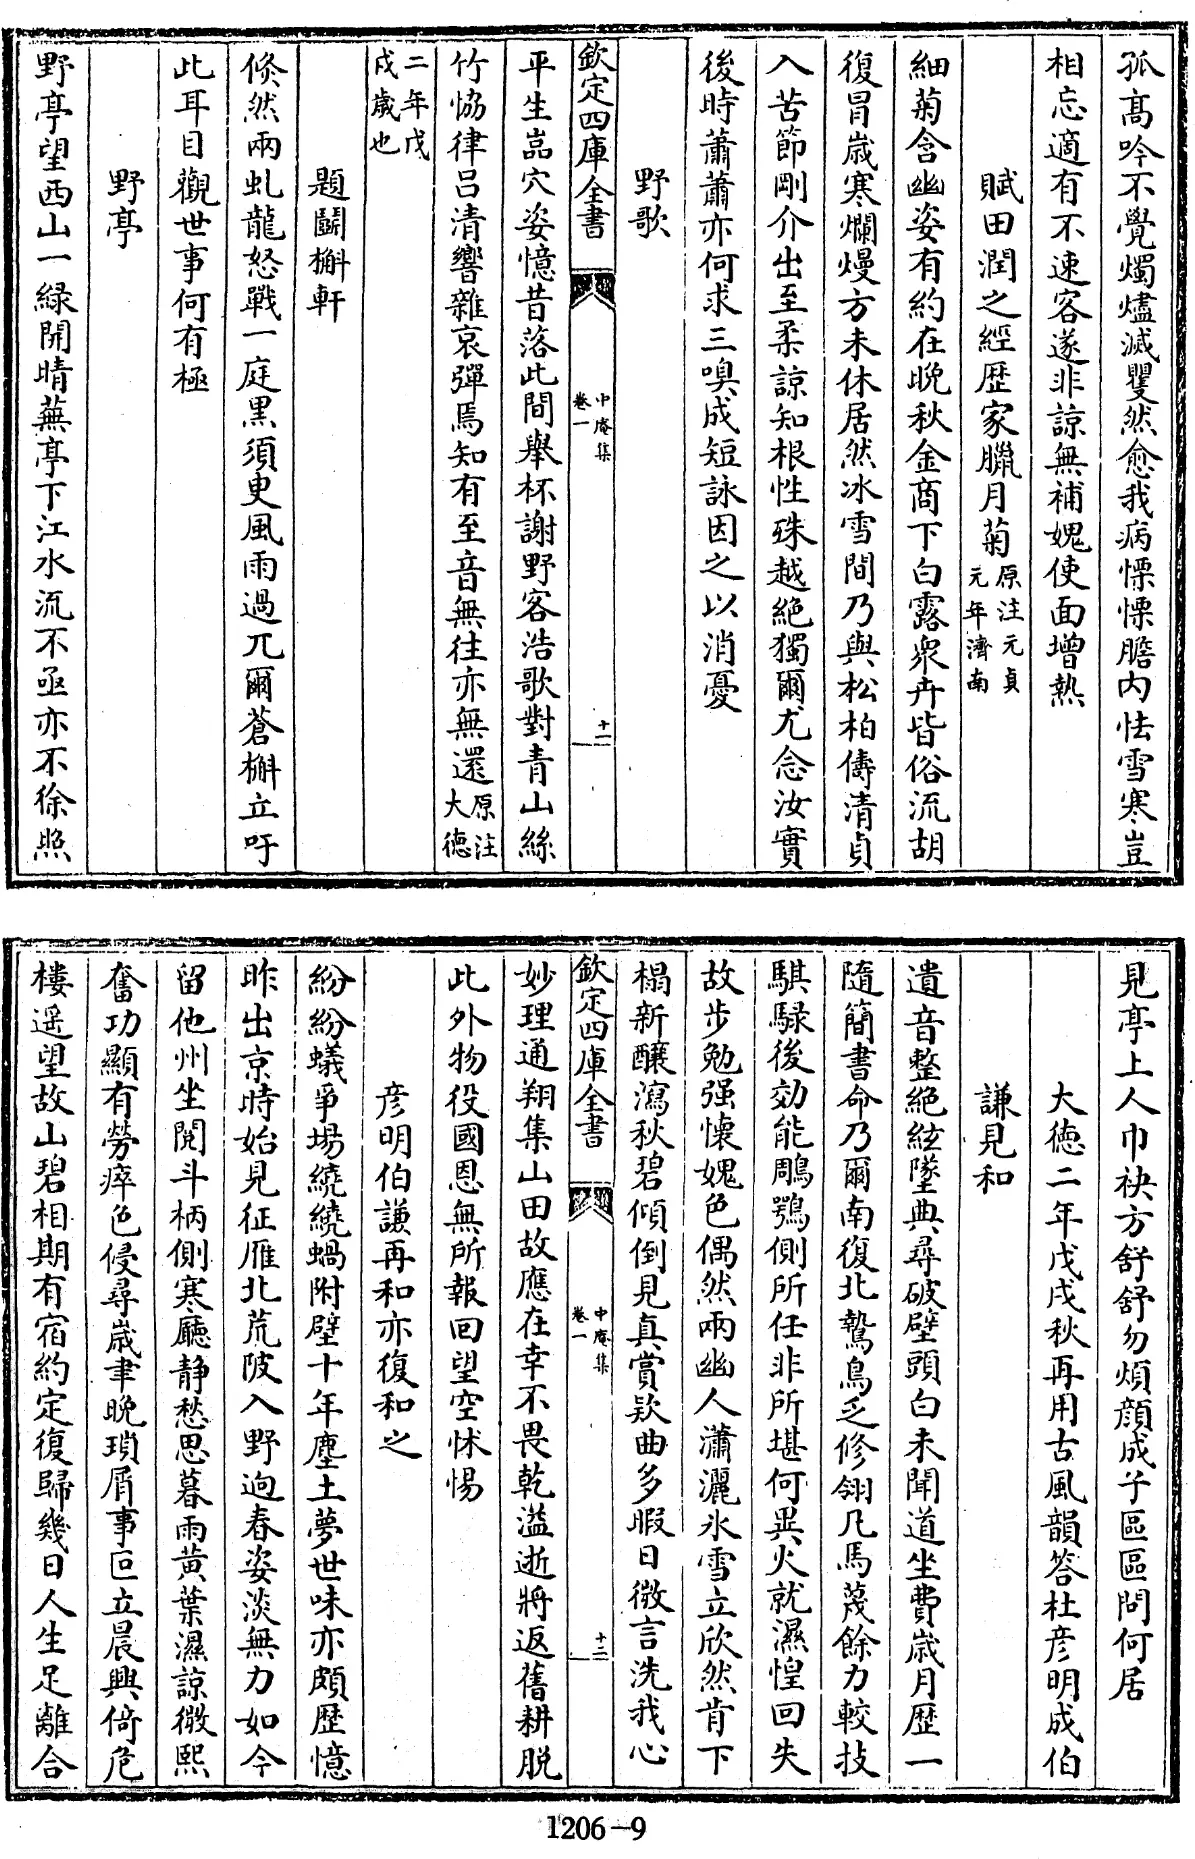 孤髙吟不覺燭燼滅瞿然愈我病慄慄膽内怯雪寒豈
相忘適有不速客遂非諒無補媿使面增熱
賦田潤之經歴家臘月菊原注元貞元年濟南
細菊含幽姿有約在晚秋金商下白露衆卉皆俗流胡
復冒歳寒爛熳方未休居然冰雪間乃與松柏儔清貞
入苦節剛介出至柔諒知根性殊越絶獨爾尤念汝實
後時蕭蕭亦何求三嗅成短詠因之以消憂
野歌
欽定四庫全書
中庵集
卷一
十一
平生嵓穴姿憶昔落此間舉杯謝野客浩歌對青山絲
竹協律吕清響雜哀彈焉知有至音無往亦無還原注大德
二年戊戌歲也
題鬬槲軒
倐然兩虬龍怒戰一庭黒須史風雨過兀爾蒼槲立吁
此耳目觀世事何有極
野亭
野亭望西山一緑開晴蕪亭下江水流不亟亦不徐照
見亭上人巾袂方舒舒勿煩顔成子區區問何居
大德二年戊戌秋再用古風韻答杜彦明成伯
謙見和
遺音整絶絃墜典尋破壁頭白未聞道坐費歳月歴一
隨簡書命乃爾南復北驚鳥乏修翎凡馬蔑餘力較技
騏騄後効能鵰鶚側所任非所堪何異火就濕惶回失
故步勉强懷媿色偶然兩幽人瀟灑氷雪立欣然肯下
榻新釀瀉秋碧傾倒見真賞欵曲多暇日微言洗我心
欽定四庫全書
中庵集
卷一
十二
妙理通翔集山田故應在幸不畏乾溢逝將返舊耕脱
此外物役國恩無所報回望空怵惕
彦明伯謙再和亦復和之
紛紛蟻爭場繞繞蝸附壁十年塵土夢世味亦頗歴憶
昨出京時始見征雁北荒陂入野逈春姿淡無力如今
留他州坐閱斗柄側寒廳静愁思暮雨黄葉濕諒微熙
奮功顯有勞瘁色侵尋歳聿晩瑣屑事叵立晨興倚危
樓遥望故山碧相期有宿約定復歸幾日人生足離合
1206—9